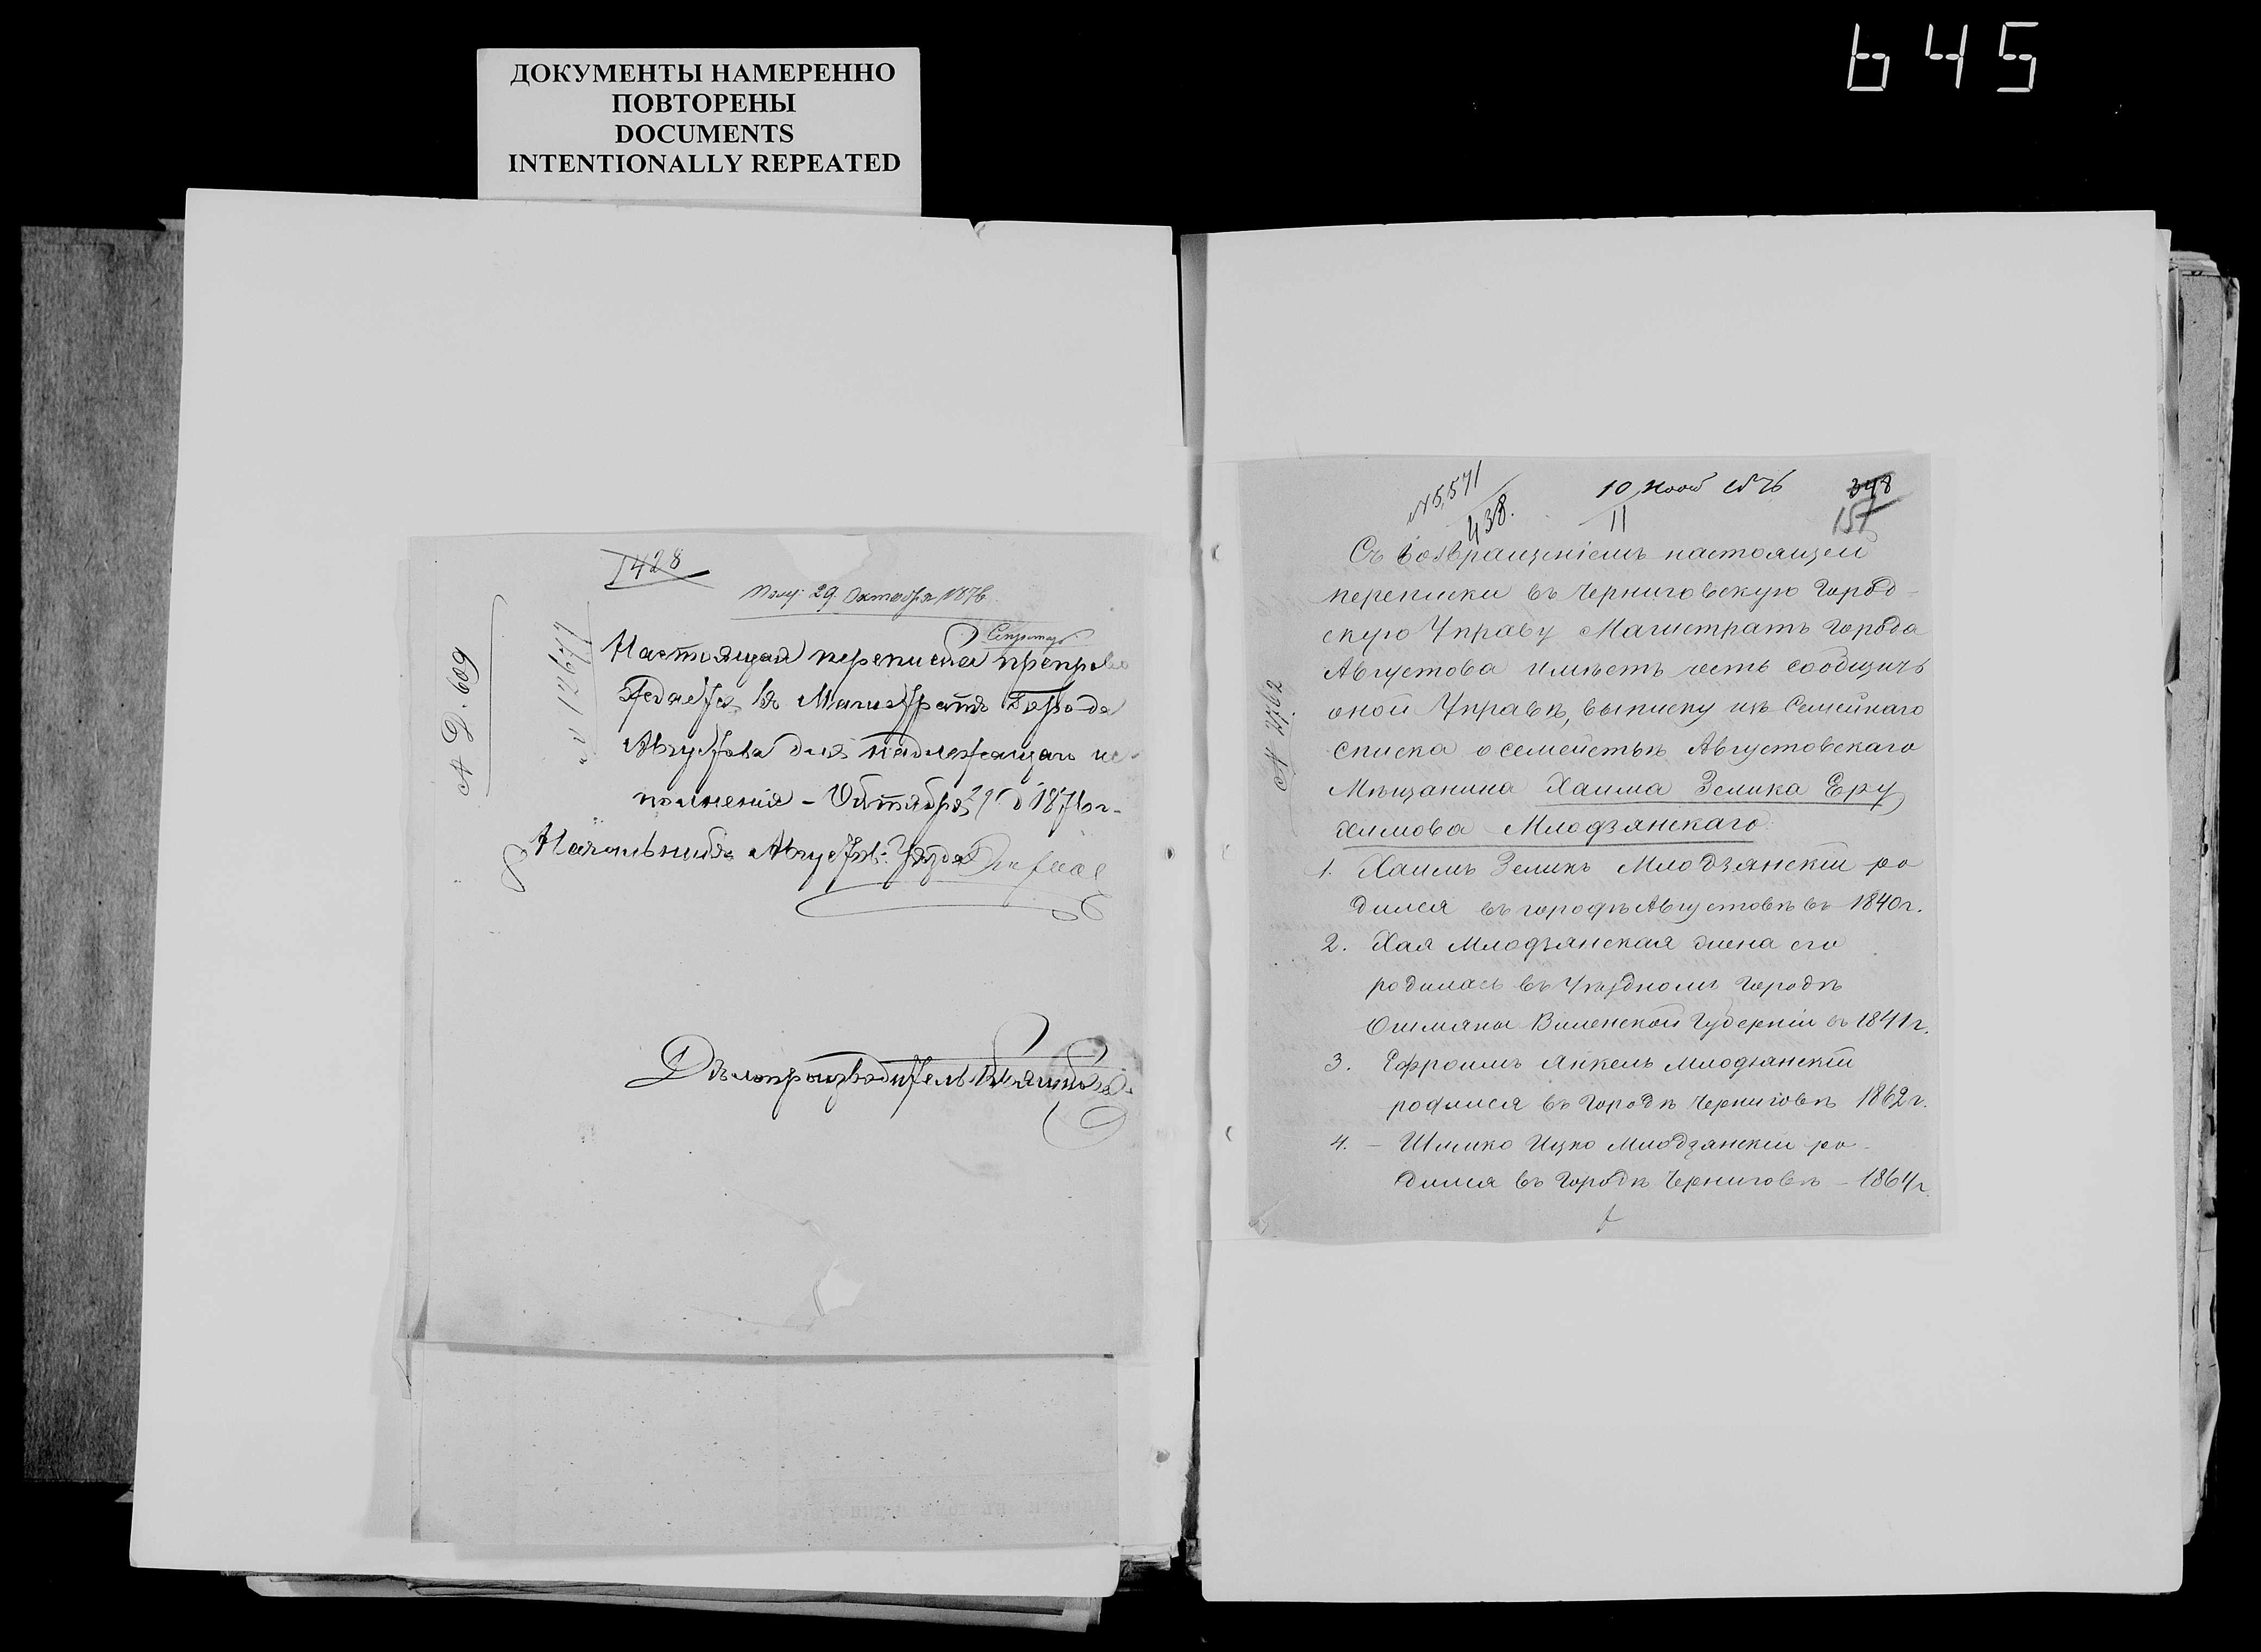 645
ДОКУМЕНТЫ НАМЕРЕННО
ПОВТОРЕНЫ
DOCUMENTS
INTENTIONALLY REPEATED
1428
Полу: 29 Октября 1876
Секретарь
№ Д. 609
№ 12677
Настоящая переписка препрово
ждается въ Магистратъ Города
Августова для надлежащаго ис-
полненія - Октября 29 д 1876 г-
Начальникъ Август: Уѣзда
Дѣлопроизводитель
№ 5,571
438.
10 Нояб 1876
11
348
157
№ 2762
Съ возвращеніемъ настоящей
переписки въ Черниговскую Город-
скую Управу Магистратъ города
Августова имѣетъ честь сообщить
оной Управѣ, выписку изъ Семейнаго
списка о семействѣ Августовскаго
Мѣщанина Хаима Зелика Еру
химова Млодзянскаго.
1. Хаимъ Зеликъ Млодзянскій ро
дился въ городѣ Августовѣ въ 1840 г.
2. Хая Млодзянская жена его
родилась въ Уѣздномъ Городѣ
Ошмяны Виленской Губерніи въ 1841 г.
3. Ефроимъ Янкель Млодзянскій
родился въ Городѣ Черниговѣ 1862 г.
4. - Шлико Ицко Млодзянскій ро-
дился въ Городѣ Черниговѣ - 1864 г.